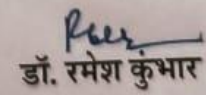 डॉ. रमेश कुंभार